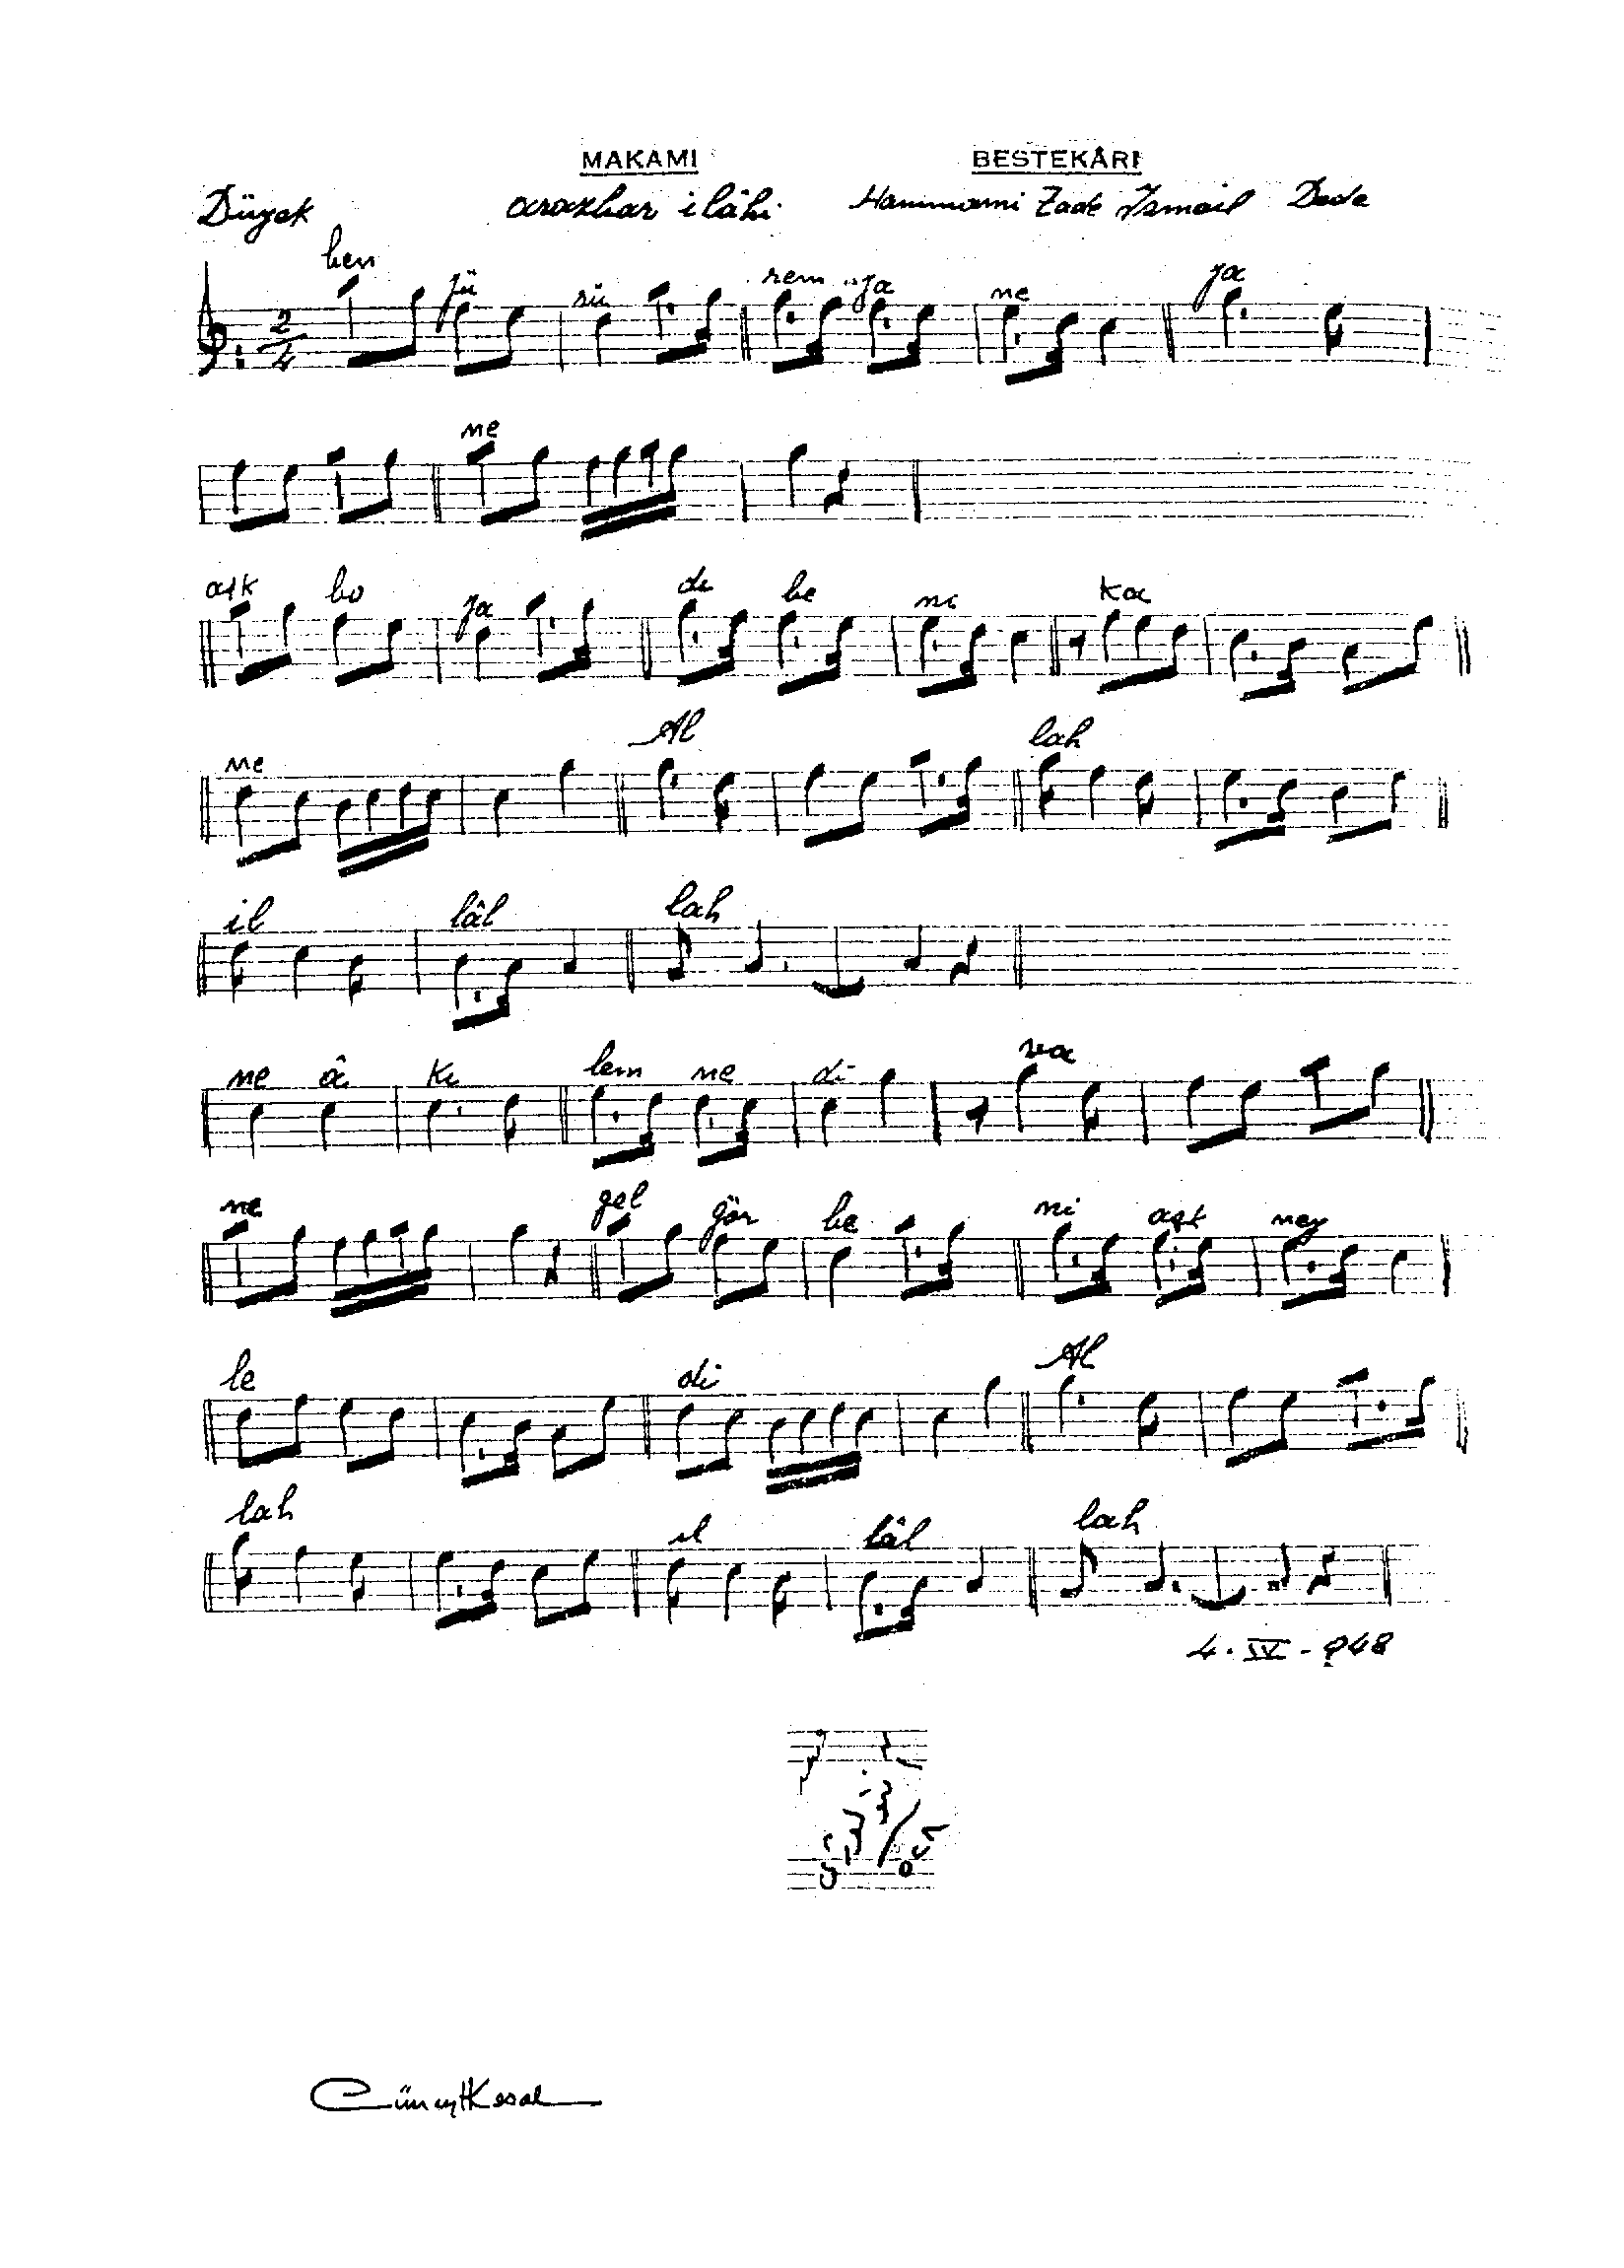 MAKAMI BESTEKÂRI
Düyek arazbar ilâhi Hammami Zade İsmail Dede
ben yü rü rem ya ne ya
2/4
ne
aşk bo ya dı be ni ka
ne Al lah
il lâl lah
ne â kı lem ne di va
ne gel gör be ni aşk ney
le di Al
lah il lâl lah
4·IV-948
Cüneyt Kosal